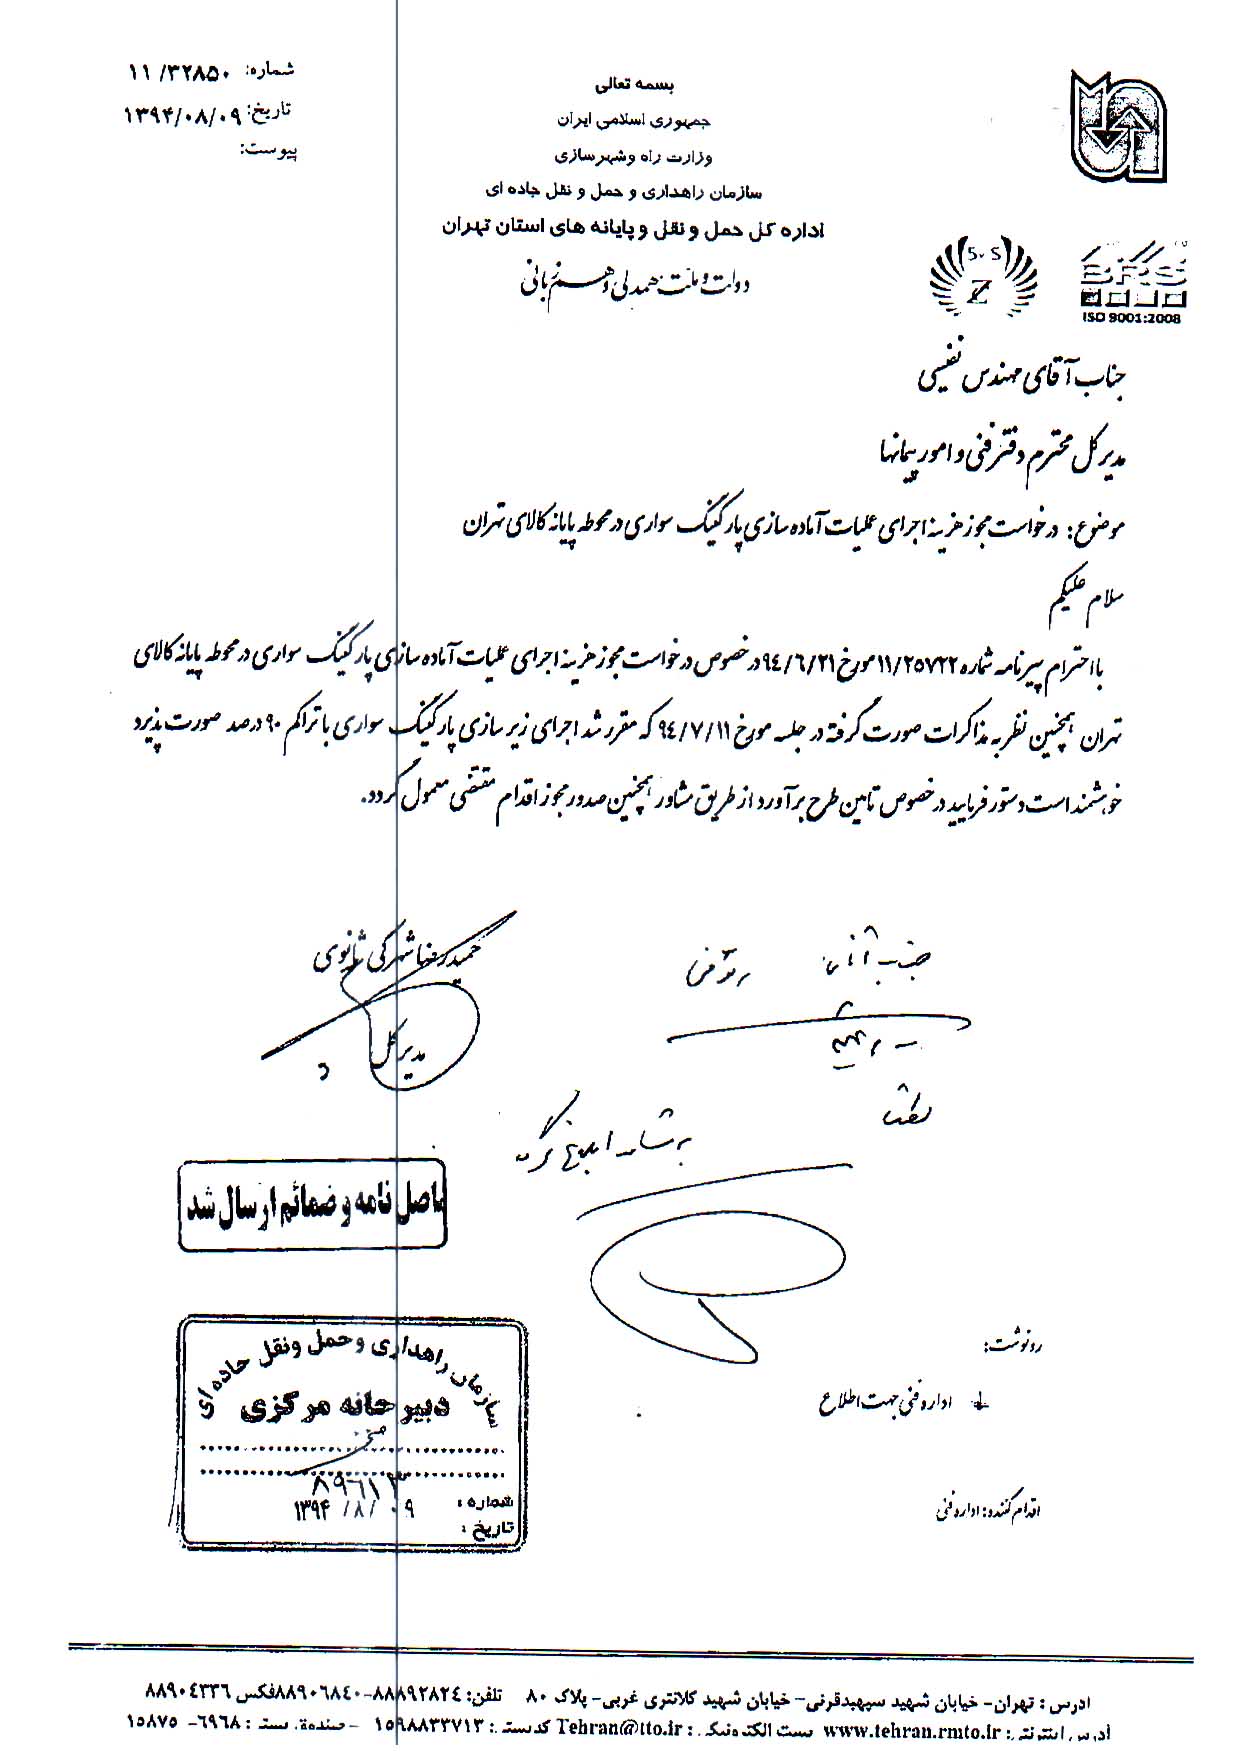 شماره: ۱۱/۳۲۸۵۰
تاریخ: ۱۳۹۴/۰۸/۰۹
پیوست:
بسمه تعالی
جمهوری اسلامی ایران
وزارت راه وشهرسازی
سازمان راهداری و حمل و نقل جاده ای
اداره کل حمل و نقل و پایانه های استان تهران
دولت و ملت همدلی و همزبانی
5 S
Z
BRS
ISO 9001:2008
جناب آقای مهندس نفیسی
مدیر کل محترم دفتر فنی و امور پیمانها
موضوع: درخواست مجوز هزینه اجرای عملیات آماده سازی پارکینگ سواری در محوطه پایانه کالای تهران
سلام علیکم
با احترام پیرنامه شماره ۱۱/۲۵۷۲۲ مورخ ۹۴/۶/۲۱ در خصوص درخواست مجوز هزینه اجرای عملیات آماده سازی پارکینگ سواری در محوطه پایانه کالای
تهران همچنین نظر به مذاکرات صورت گرفته در جلسه مورخ ۹۴/۷/۱۱ که مقرر شد اجرای زیرسازی پارکینگ سواری با تراکم ۹۰ درصد صورت پذیرد
خواهشمند است دستور فرمایید در خصوص تامین طرح برآورد از طریق مشاور همچنین صدور مجوز اقدام مقتضی معمول گردد.
حمیدرضا شهرکی ثانوی
مدیر کل
جناب آقای
لطفا
به مشاور ابلاغ گردد
اصل نامه و ضمائم ارسال شد
سازمان راهداری و حمل ونقل جاده ای
دبیرخانه مرکزی
شماره: ۸۹۶۱۳
تاریخ: ۱۳۹۴/۸/۰۹
رونوشت:
اداره فنی جهت اطلاع
اقدام کننده: اداره فنی
ادرس: تهران- خیابان شهید سپهبدقرنی- خیابان شهید کلانتری غربی- پلاک ۸۰ تلفن: ۸۸۸۹۲۸۲۴-۸۸۹۰۶۸۴۰ فکس ۸۸۹۰۴۳۳۶
آدرس اینترنتی: www.tehran.rmto.ir پست الکترونیکی: Tehran@tto.ir کد پستی: ۱۵۹۸۸۳۳۷۱۳ - صندوق پستی: ۶۹۶۸- ۱۵۸۷۵